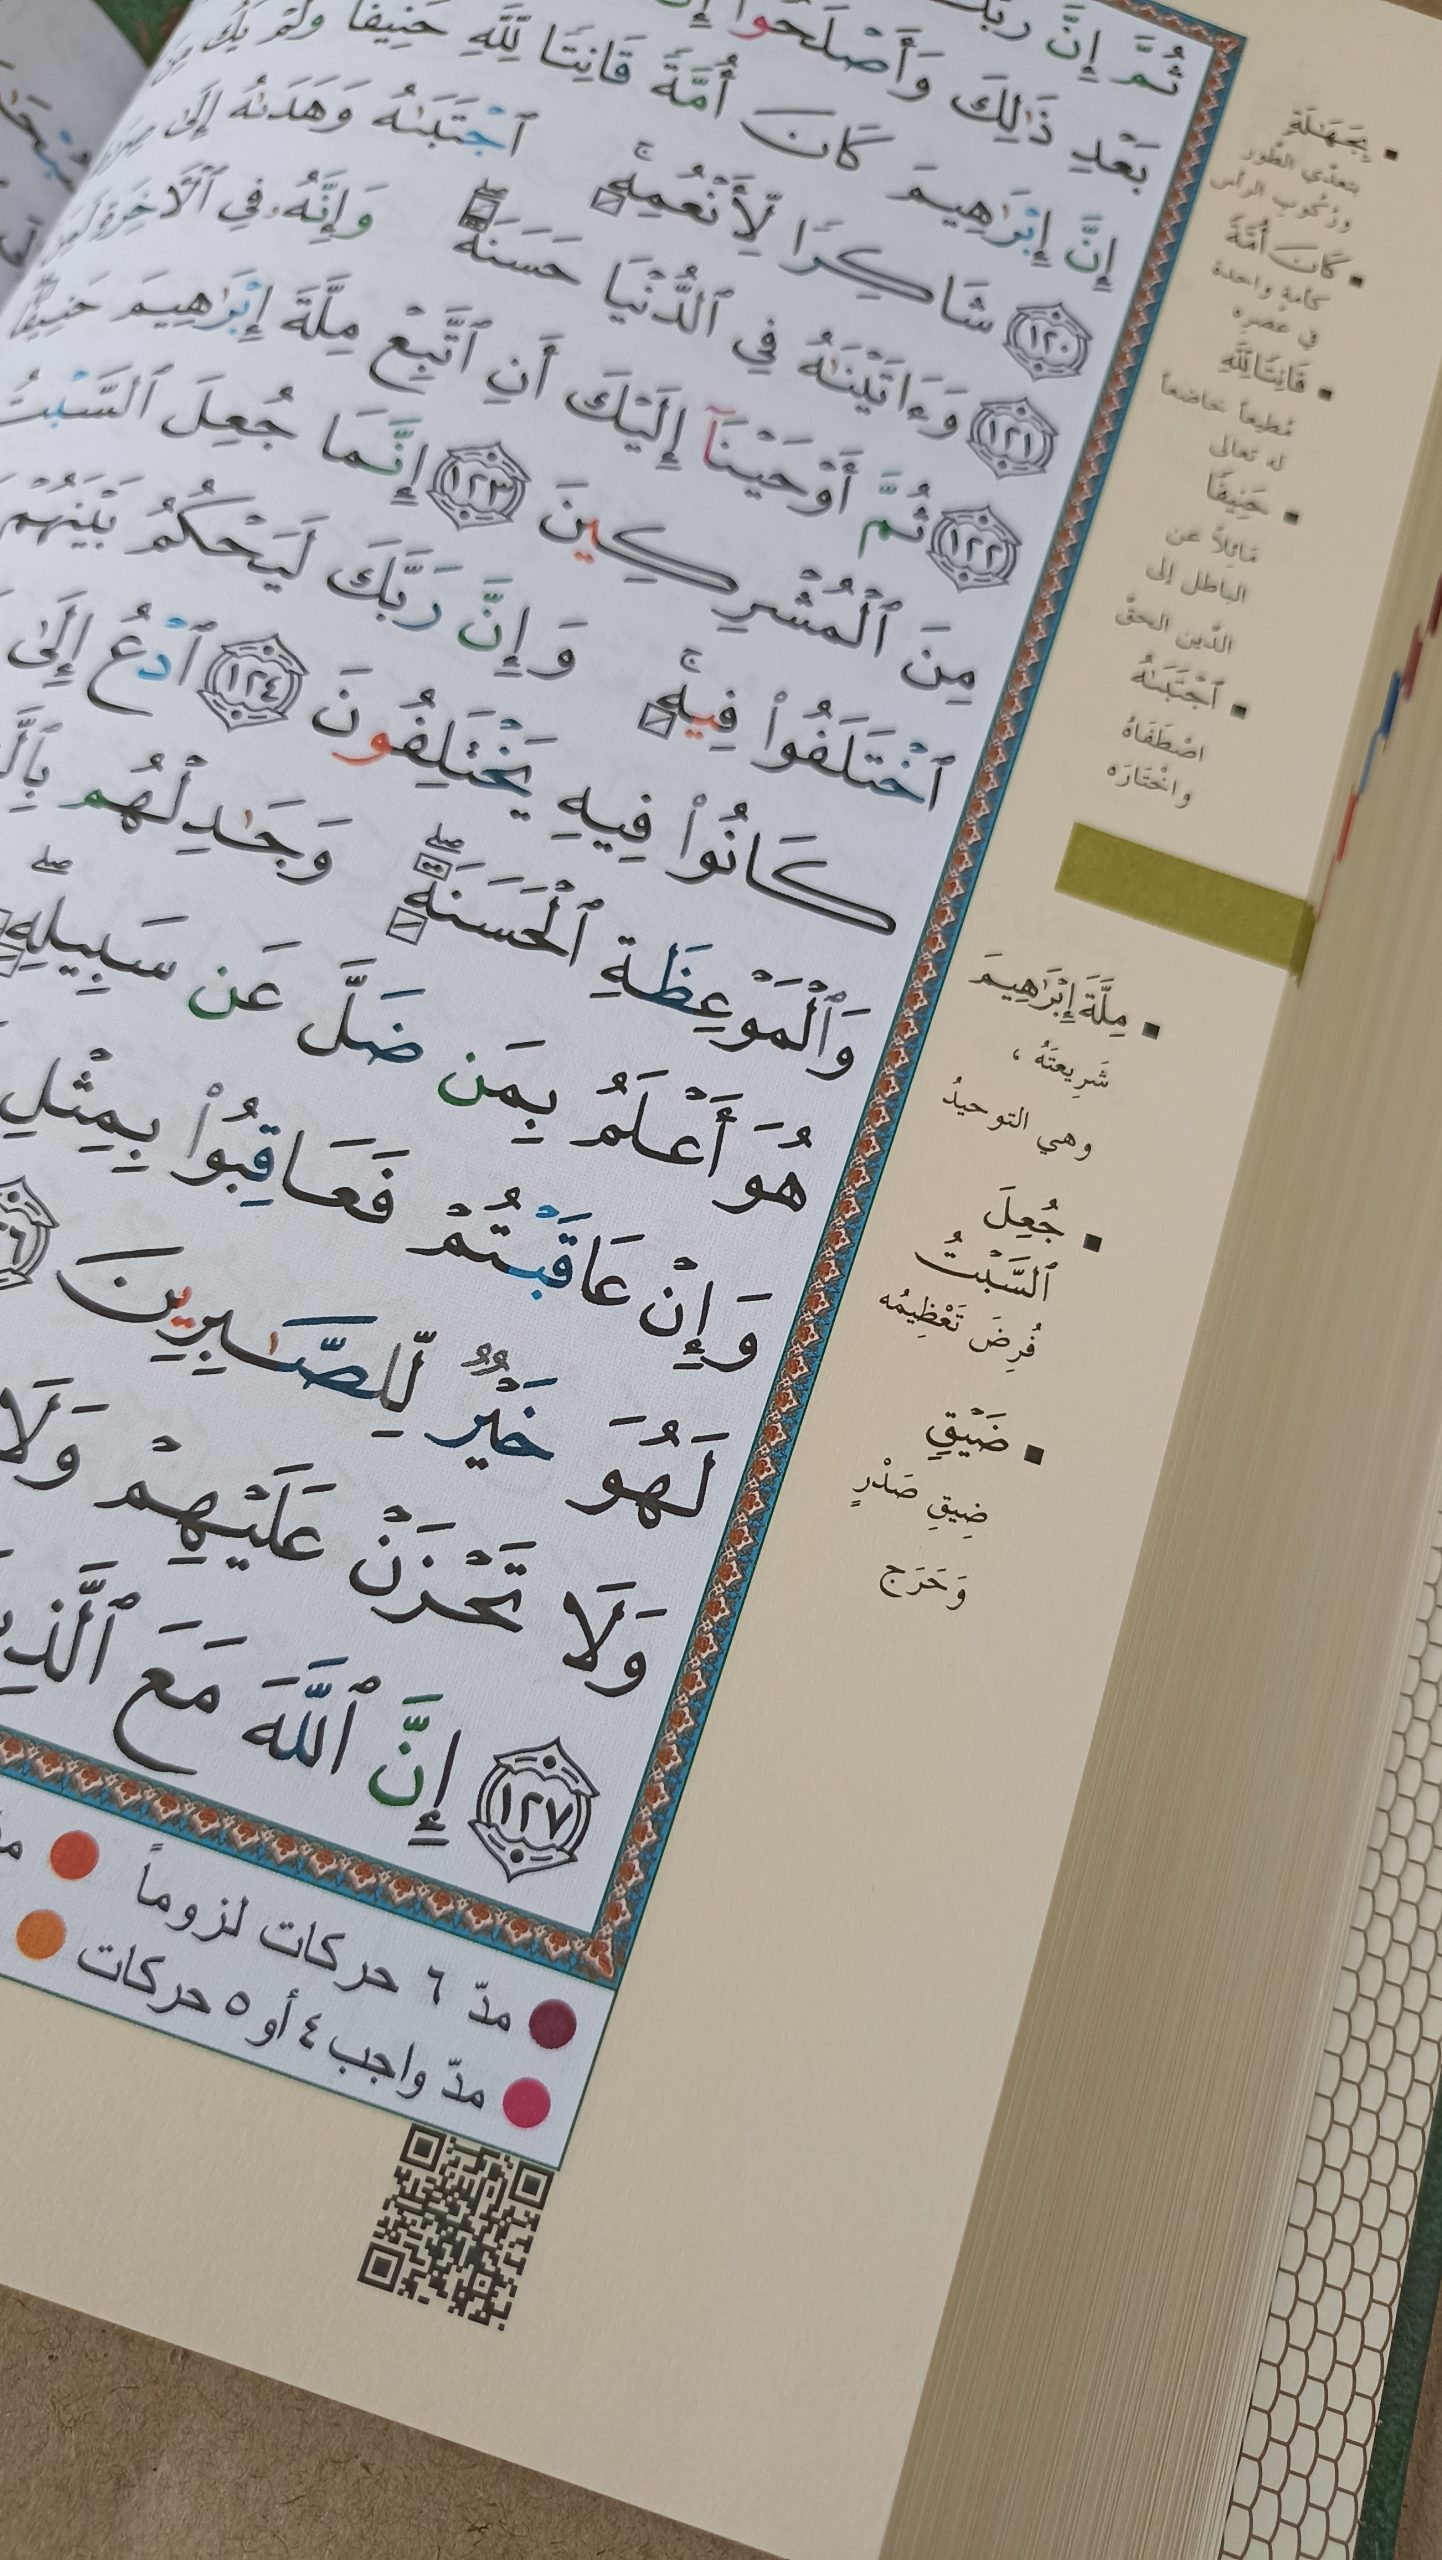 ثُمَّ إِنَّ رَبَّكَ
بَعْدِ ذَٰلِكَ وَأَصْلَحُوٓا۟ إِنَّ
إِنَّ إِبْرَٰهِيمَ كَانَ أُمَّةً قَانِتًا لِّلَّهِ حَنِيفًا وَلَمْ يَكُ مِنَ
١٢٠ شَاكِرًا لِّأَنْعُمِهِ ۚ ٱجْتَبَىٰهُ وَهَدَىٰهُ إِلَىٰ صِرَٰطٍ
١٢١ وَءَاتَيْنَٰهُ فِى ٱلدُّنْيَا حَسَنَةً ۖ وَإِنَّهُۥ فِى ٱلْءَاخِرَةِ لَمِنَ
١٢٢ ثُمَّ أَوْحَيْنَآ إِلَيْكَ أَنِ ٱتَّبِعْ مِلَّةَ إِبْرَٰهِيمَ حَنِيفًا
مِنَ ٱلْمُشْرِكِينَ ١٢٣ إِنَّمَا جُعِلَ ٱلسَّبْتُ
ٱخْتَلَفُوا۟ فِيهِ ۚ وَإِنَّ رَبَّكَ لَيَحْكُمُ بَيْنَهُمْ
كَانُوا۟ فِيهِ يَخْتَلِفُونَ ١٢٤ ٱدْعُ إِلَىٰ
وَٱلْمَوْعِظَةِ ٱلْحَسَنَةِ ۖ وَجَٰدِلْهُم
هُوَ أَعْلَمُ بِمَن ضَلَّ عَن سَبِيلِهِ ۖ
وَإِنْ عَاقَبْتُمْ فَعَاقِبُوا۟ بِمِثْلِ
لَهُوَ خَيْرٌ لِّلصَّٰبِرِينَ
وَلَا تَحْزَنْ عَلَيْهِمْ وَلَا
١٢٧ إِنَّ ٱللَّهَ مَعَ
بِجَهَٰلَةٍ
بتعدّي الطّور
وركوب الرأس
كَانَ أُمَّةً
كأمةٍ واحدة
في عصره
قَانِتًا لِلَّهِ
مُطيعاً خاضعاً
له تعالى
حَنِيفًا
مَائِلاً عن
الباطل إلى
الدّين الحقّ
ٱجْتَبَىٰهُ
اصْطَفَاهُ
واخْتَارَه
مِلَّةَ إِبْرَٰهِيمَ
شَرِيعَتَهُ ،
وهي التوحيدُ
جُعِلَ
ٱلسَّبْتُ
فُرِضَ تَعْظِيمُه
ضَيْقٍ
ضِيقِ صَدْرٍ
وَحَرَج
مدّ ٦ حركات لزوماً
مدّ واجب ٤ أو ٥ حركات